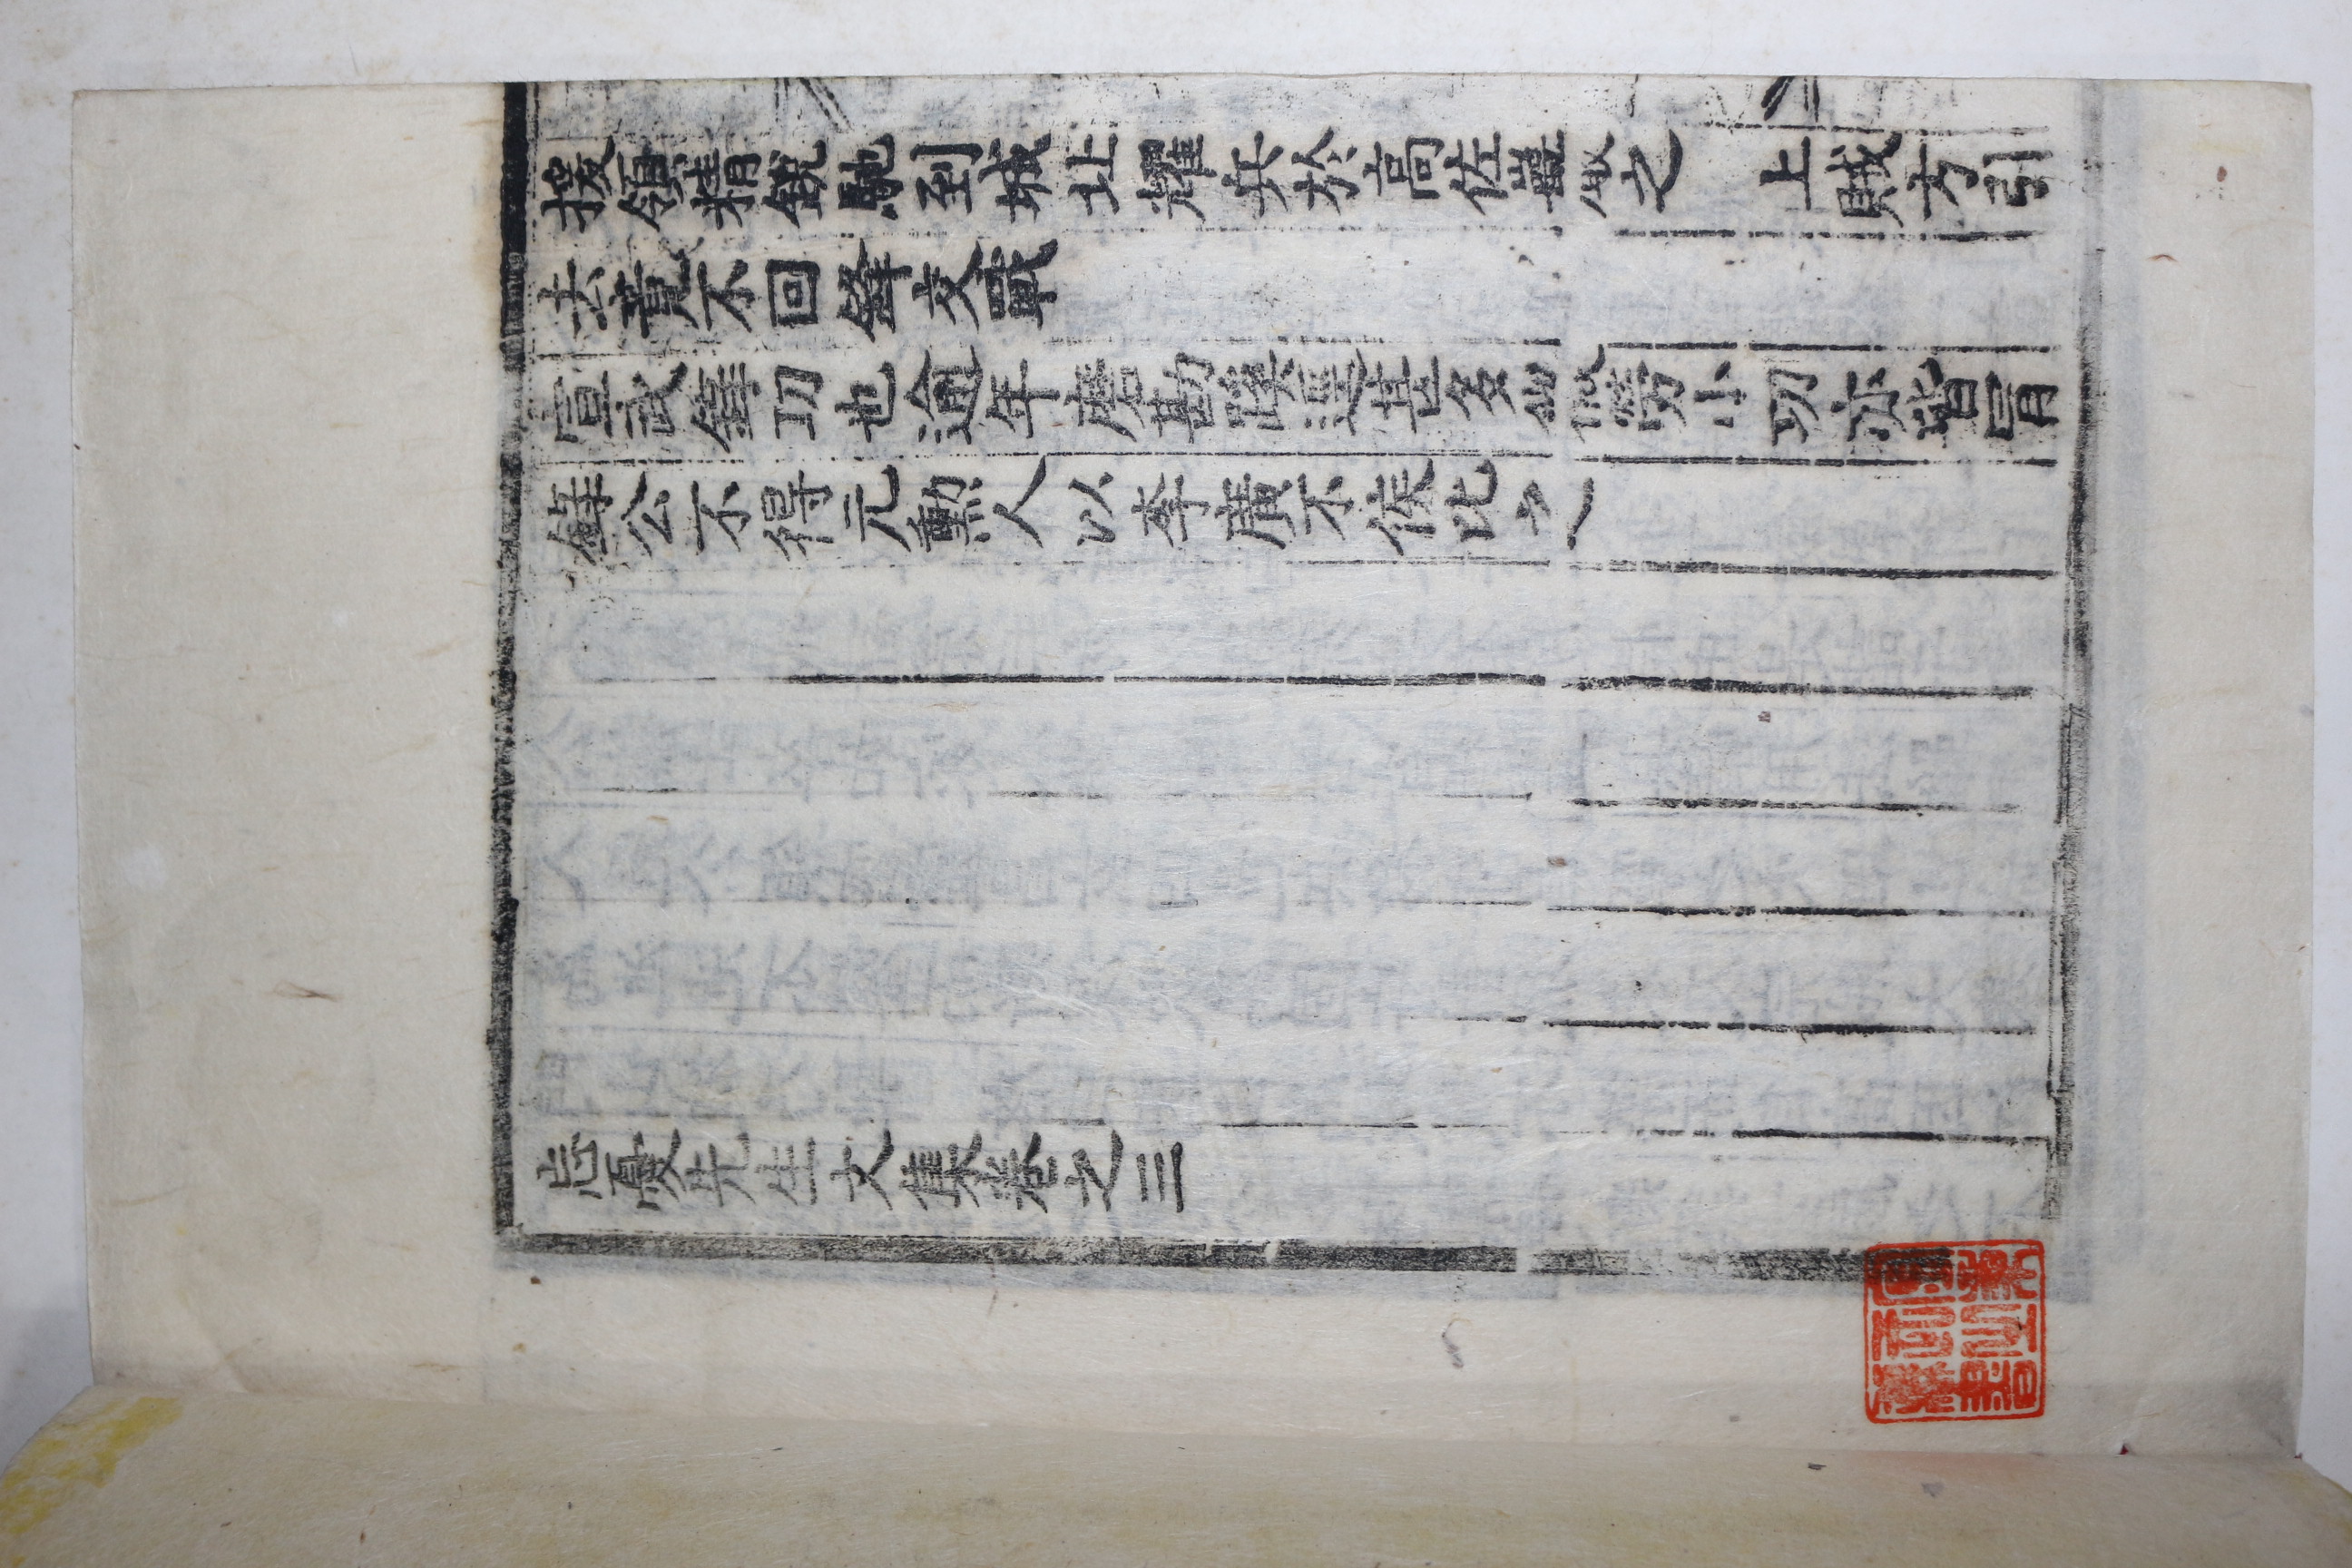 援領精銳馳到城北耀兵於高佐巖之　上賊方引
去竟不回鋒交戰
宣武錄功也逾年磨勘蹊逕甚多細微勞小功亦皆冒
錄公不得元勳人以李廣不侯比之
忘憂先生文集卷之三